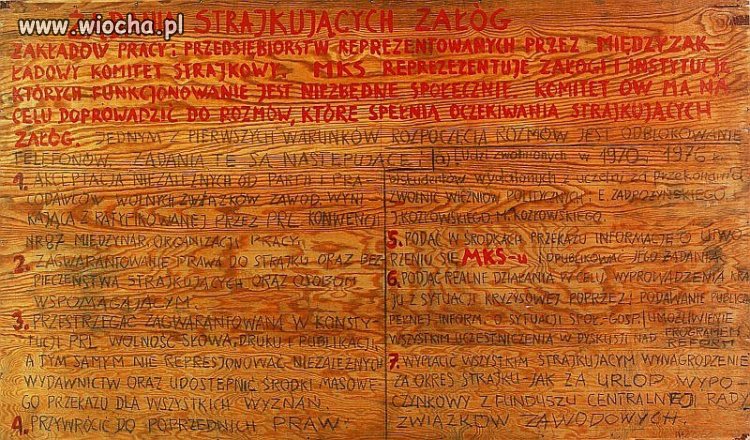 www.wiocha.pl
ŻĄDANIA STRAJKUJĄCYCH ZAŁÓG
ZAKŁADÓW PRACY I PRZEDSIĘBIORSTW REPREZENTOWANYCH PRZEZ MIĘDZYZAK-
ŁADOWY KOMITET STRAJKOWY. MKS REPREZEZENTUJE ZAŁOGI I INSTYTUCJE
KTÓRYCH FUNKCJONOWANIE JEST NIEZBĘDNE SPOŁECZNIE KOMITET ÓW MA NA
CELU DOPROWADZIĆ DO ROZMÓW, KTÓRE SPEŁNIĄ OCZEKIWANIA STRAJKUJĄCYCH
ZAŁÓG. JEDNYM Z PIERWSZYCH WARUNKÓW ROZPOCZĘCIA ROZMÓW JEST ODBLOKOWANIE
TELEFONÓW. ŻĄDANIA TE SĄ NASTĘPUJĄCE:
1. AKCEPTACJA NIEZALEŻNYCH OD PARTII I PRA-
CODAWCÓW WOLNYCH ZWIĄZKÓW ZAWOD. WYNI-
KAJĄCA Z RATYFIKOWANEJ PRZEZ PRL KONWENCJI
NR 87 MIĘDZYNAR. ORGANIZACJI PRACY.
2. ZAGWARANTOWANIE PRAWA DO STRAJKU ORAZ BEZ-
PIECZEŃSTWA STRAJKUJĄCYCH ORAZ OSOBOM
WSPOMAGAJĄCYM.
3. PRZESTRZEGAĆ ZAGWARANTOWANĄ W KONSTY-
TUCJI PRL WOLNOŚĆ SŁOWA, DRUKU I PUBLIKACJI
A TYM SAMYM NIE REPRESJONOWAĆ NIEZALEŻNYCH
WYDAWNICTW ORAZ UDOSTĘPNIĆ ŚRODKI MASOWE-
GO PRZEKAZU DLA WSZYSTKICH WYZNAŃ.
4. PRZYWRÓCIĆ DO POPRZEDNICH PRAW:
a) Ludzi zwolnionych w 1970 i 1976 r.
b) studentów wydalonych z uczelni za przekonania
ZWOLNIĆ WIĘŹNIÓW POLITYCZNYCH: E. ZADROŻYŃSKIEGO
J. KOZŁOWSKIEGO M. KOZŁOWSKIEGO
5. PODAĆ W ŚRODKACH PRZEKAZU INFORMACJE O UTWO-
RZENIU SIĘ MKS-u I OPUBLIKOWAĆ JEGO ŻĄDANIA
6. PODJĄĆ REALNE DZIAŁANIA W CELU WYPROWADZENIA KRA-
JU Z SYTUACJI KRYZYSOWEJ POPRZEZ: PODAWANIE PUBLICZ.
PEŁNEJ INFORM. O SYTUACJI SPOŁ-GOSP. I UMOŻLIWIENIE
WSZYSTKIM UCZESTNICZENIA W DYSKUSJI NAD PROGRAMEM
REFORM
7. WYPŁACIĆ WSZYSTKIM STRAJKUJĄCYM WYNAGRODZENIE
ZA OKRES STRAJKU - JAK ZA URLOP WYPO-
CZYNKOWY Z FUNDUSZU CENTRALNEJ RADY
ZWIĄZKÓW ZAWODOWYCH.